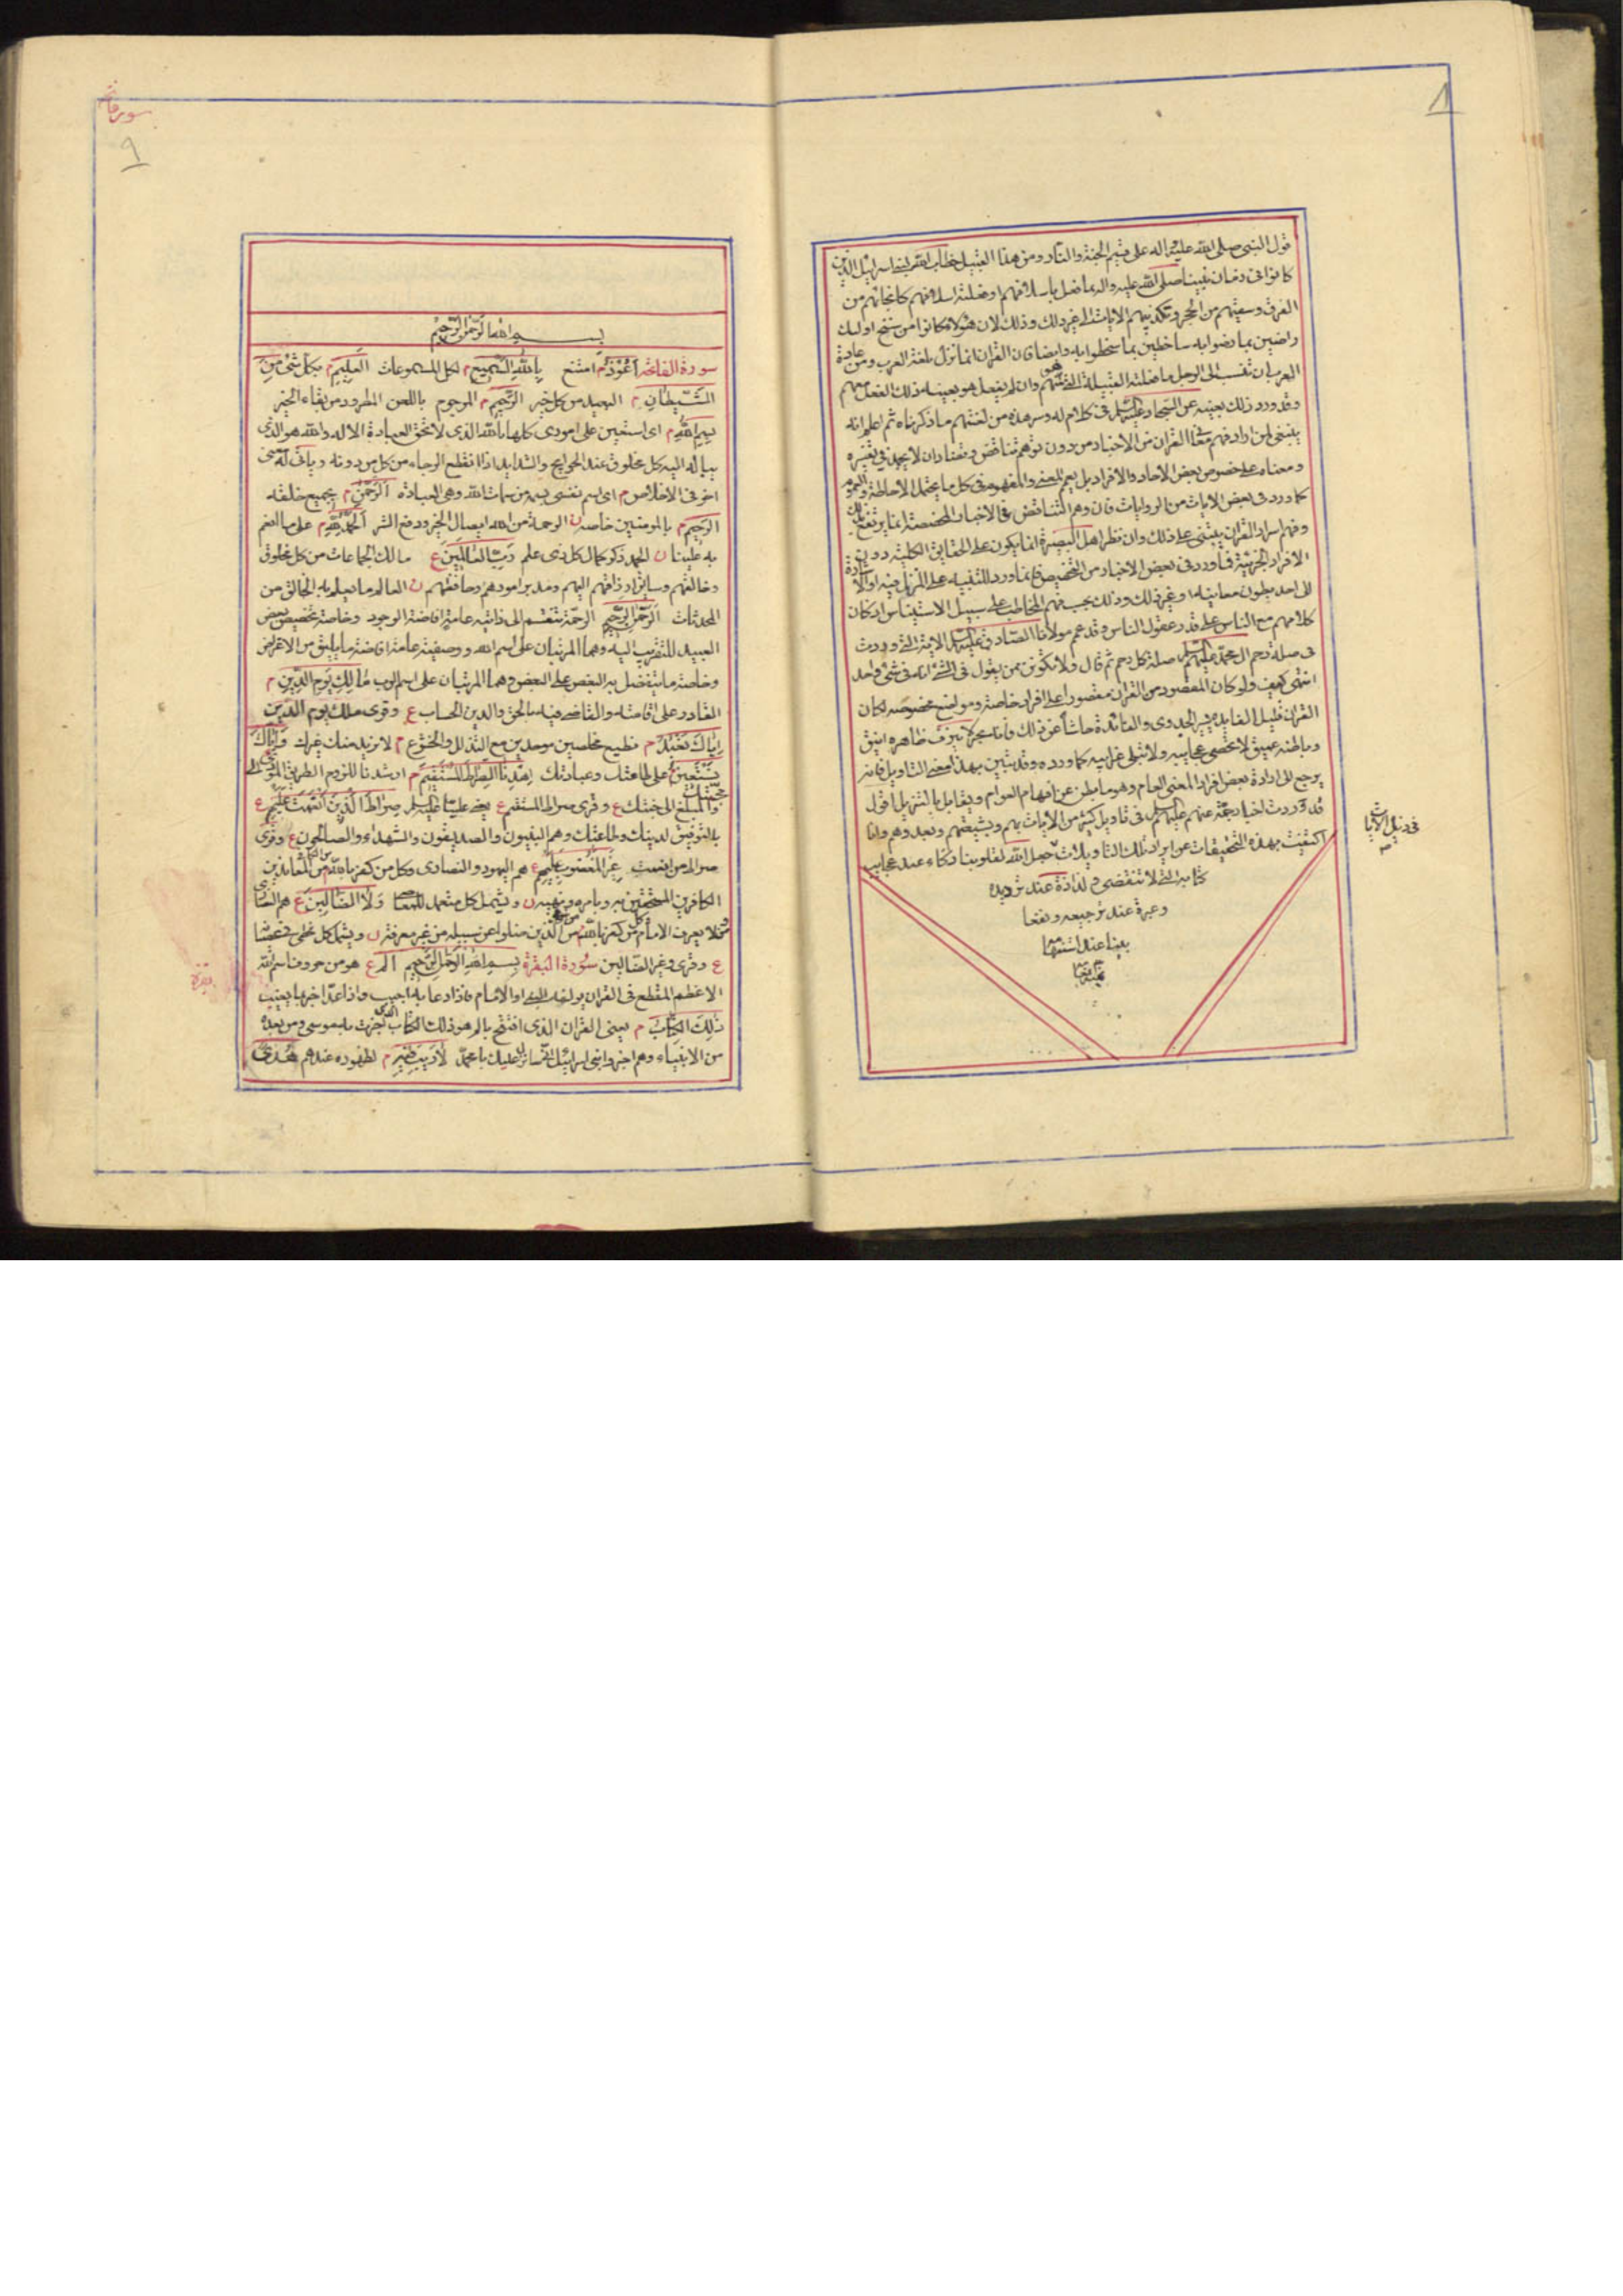 ٨
قول النبى صلى الله عليه واله على قسيم الجنة والنار ومن هذا القبيل خطاب الله لبنى اسرائيل الذين
كانوا فى زمان نبينا صلى الله عليه واله بما فعل باسلافهم او فعلته اسلافهم كانجائهم من
الغرق وسقيهم من الحجر وتكذيبهم الايات الى غير ذلك وذلك لان هؤلاء كانوا من سنخ اولئك
راضين بما رضوا به ساخطين بما سخطوا به وايضا فان القران انما نزل بلغة العرب ومن عادة
العرب ان تنسب الى الرجل ما فعلته القبيلة التى هو منهم وان لم يفعل هو بعينه ذلك الفعل معهم
وقد ورد ذلك بعينه عن السجاد عليه السلام فى كلام له وسر هذه من لغتهم ما ذكرناه ثم اعلم انه
ينبغى لمن اراد فهم معانى القران من الاخبار من دون توهم تناقض وتضاد ان لا يجمد فى تفسيره
ومعناه على خصوص بعض الاحاد والافراد بل يعم المعنى والمفهوم فى كل ما يحتمل الاحاطة والعموم
كما ورد فى بعض الايات من الروايات فان وهم التناقض فى الاخبار المخصصة انما يرتفع بذلك
وفهم اسرار القران يبتنى على ذلك وان نظر اهل البصيرة انما يكون على الحقايق الكلية دون
الافراد الجزئية فما ورد فى بعض الاخبار من التخصيص فانما ورد للتنبيه على المنزل فيه او الاشارة
الى احد بطون معانيه او غير ذلك وذلك بحسب فهم المخاطب على سبيل الاستيناس اذ كان
كلامهم مع الناس على قدر عقول الناس وقد عمم مولانا الصادق عليه السلام الاية التى وردت
فى صلة رحم ال محمد عليهم السلام صلة كل رحم ثم قال ولا تكونن ممن يقول فى الشئ انه فى شئ واحد
انتهى كيف ولو كان المقصود من القران مقصورا على افراد خاصة ومواضع مخصوصة لكان
القران قليل الفايدة يسير الجدوى والعائدة حاشا عن ذلك فانه بحر لا ينزف ظاهره انيق
وباطنه عميق لا تحصى عجايبه ولا تبلى غرايبه كما ورد وقد تبين بهذا معنى التاويل فانه
يرجع الى ارادة بعض افراد المعنى العام وهو ما بطن عن افهام العوام ويقابل بالتنزيل اقول
قد وردت اخبار جمة عنهم عليهم السلام فى تاويل كثير من الايات بهم وبشيعتهم وبعدوهم وانا
اكتفيت بهذه التحقيقات عن ايراد تلك التاويلات جعل الله لقلوبنا ذكاء عند عجايب
كتابه التى لا تنقضى ولذاذة عند ترديده
وعبرة عند ترجيعه ونفعا
بينا عند استفها
مه
فى ذيل الايات
٩
بسم الله الرحمن الرحيم
سورة الفاتحة اعوذ م امتنع بالله السميع م لكل المسموعات العليم م بكل شئ من
الشيطان م البعيد من كل خير الرجيم م المرجوم باللعن المطرود من بقاء الخير
بسم الله م اى استعين على امورى كلها بالله الذى لا تحق العبادة الا له والله هو الذى
يتاله اليه كل مخلوق عند الحوايج والشدايد اذا انقطع الرجاء من كل من دونه وياتى له معنى
اخر فى الاخلاص م اى اسم نفسى بسمة من سمات الله وهى العبادة الرحمن م بجميع خلقه
الرحيم م بالمومنين خاصه ن الرحمة من الله ايصال الخير ودفع الشر الحمد لله م على ما انعم
به علينا ن الحمد ذكر كمال كل ذى علم رب العالمين ع مالك الجماعات من كل مخلوق
وخالقهم وسايق ارزاقهم اليهم ومدبر امورهم وحافظهم ن العالم ما يعلم به الخالق من
المحدثات الرحمن الرحيم الرحمة تنقسم الى ذاتيه عامة افاضة الوجود وخاصة تخصيص بعض
العبيد للتقريب اليه وهما المرتبان على اسم الله ووصفية عامة افاضة ما يليق من الاعراض
وخاصة ما يتفضل به البعض على البعض وهما المرتبان على اسم الرب مالك يوم الدين م
القادر على اقامته والقاضى فيه بالحق والدين الحساب ع وقرى ملك يوم الدين
اياك نعبد م نطيع مخلصين موحدين مع التذلل والخشوع م لا نريد منك غيرك واياك
نستعين على طاعتك وعبادتك اهدنا الصراط المستقيم م ارشدنا للزوم الطريق المؤدى الى محبتك
والمبلغ الى جنتك ع وقرى صراط المستقيم ع يعنى عليا عليه السلام صراط الذين انعمت عليهم ع
بالتوفيق لدينك وطاعتك وهم النبيون والصديقون والشهداء والصالحون ع وقرى
صراط من انعمت غير المغضوب عليهم ع هم اليهود والنصارى وكل من كفر بالله من المعاندين
الكافرين المستخفين به وبامره ونهيه ن ويشمل كل متعمد للمعاصى ولا الضالين ع هم النصارى
ومن لا يعرف الامام كل من كفر بالله من الذين ضلوا عن سبيله من غير معرفة ن ويشمل كل مخطى
ع وقرى وغير الضالين سورة البقرة بسم الله الرحمن الرحيم الم ع هو من حروف اسم الله
الاعظم المقطع فى القران يولفه النبى او الامام فاذا دعا به اجيب واذا عد اخبر بما يغيب
ذلك الكتاب م يعنى القران الذى افتتح بالم هو ذلك الكتاب الذى اخبرت به موسى ومن بعده
من الانبياء وهم اخبروا بنى اسرائيل انى سانزله عليك يا محمد لا ريب فيه م لظهوره عندهم هدى
بقره